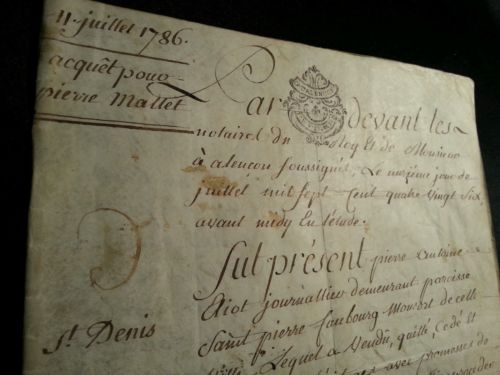 11. juillet 1786.
acquêt pour
pierre Mallet
St. Denis
Par devant les
notaires du Roy Et de Monsieur
à alençon soussignés, Le onzième jour de
juillet mil sept Cent quatre vingt six,
avant midy En l'étude.
fut présent pierre Antoine
journallier demeurant paroisse
Saint pierre faubourg Monsort de cette
Lequel a Vendu, quitté, Cédé Et
avec promesses de